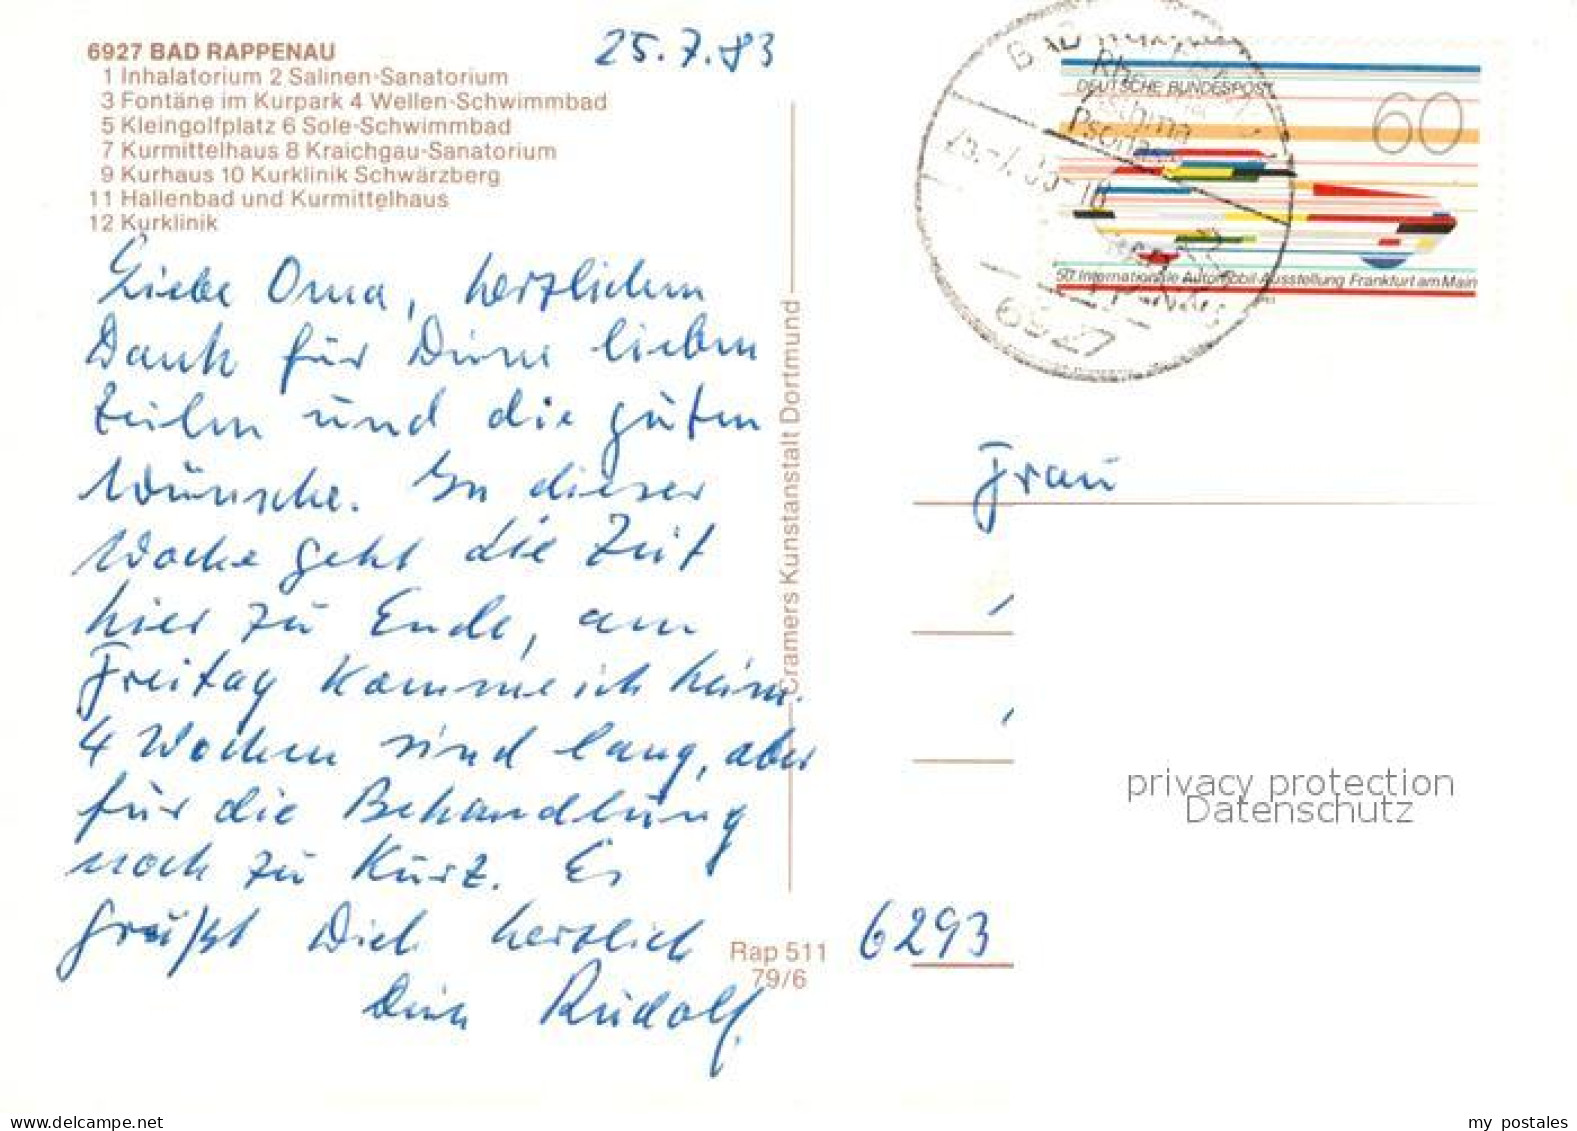 6927 BAD RAPPENAU
1 Inhalatorium 2 Salinen-Sanatorium
3 Fontäne im Kurpark 4 Wellen-Schwimmbad
5 Kleingolfplatz 6 Sole-Schwimmbad
7 Kurmittelhaus 8 Kraichgau-Sanatorium
9 Kurhaus 10 Kurklinik Schwärzberg
11 Hallenbad und Kurmittelhaus
12 Kurklinik
25.7.83
Liebe Oma, herzlichen
Dank für Deine lieben
Zeilen und die guten
Wünsche. In dieser
Woche geht die Zeit
hier zu Ende, am
Freitag komme ich heim.
4 Wochen sind lang, aber
für die Behandlung
noch zu kurz. Es
grüßt Dich herzlich
Dein Rudolf.
Cramers Kunstanstalt Dortmund
Rap 511
79/6
BAD
Rheuma
Psorias
6927
DEUTSCHE BUNDESPOST
60
50. Internationale Automobil-Ausstellung Frankfurt am Main
Frau
6293
privacy protection
Datenschutz
delcampe.net
my postales